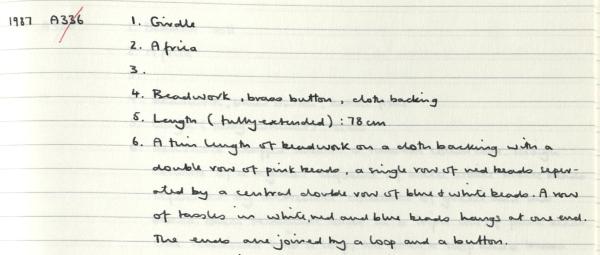 1987 A336 1. Girdle
2. Africa
3.
4. Beadwork, brass button, cloth backing
5. Length (fully-extended): 78cm
6. A thin length of beadwork on a cloth backing with a
double row of pink beads, a single row of red beads seper-
ated by a central double row of blue & white beads. A row
of tassles in white, red and blue beads hangs at one end.
The ends are joined by a loop and a button.